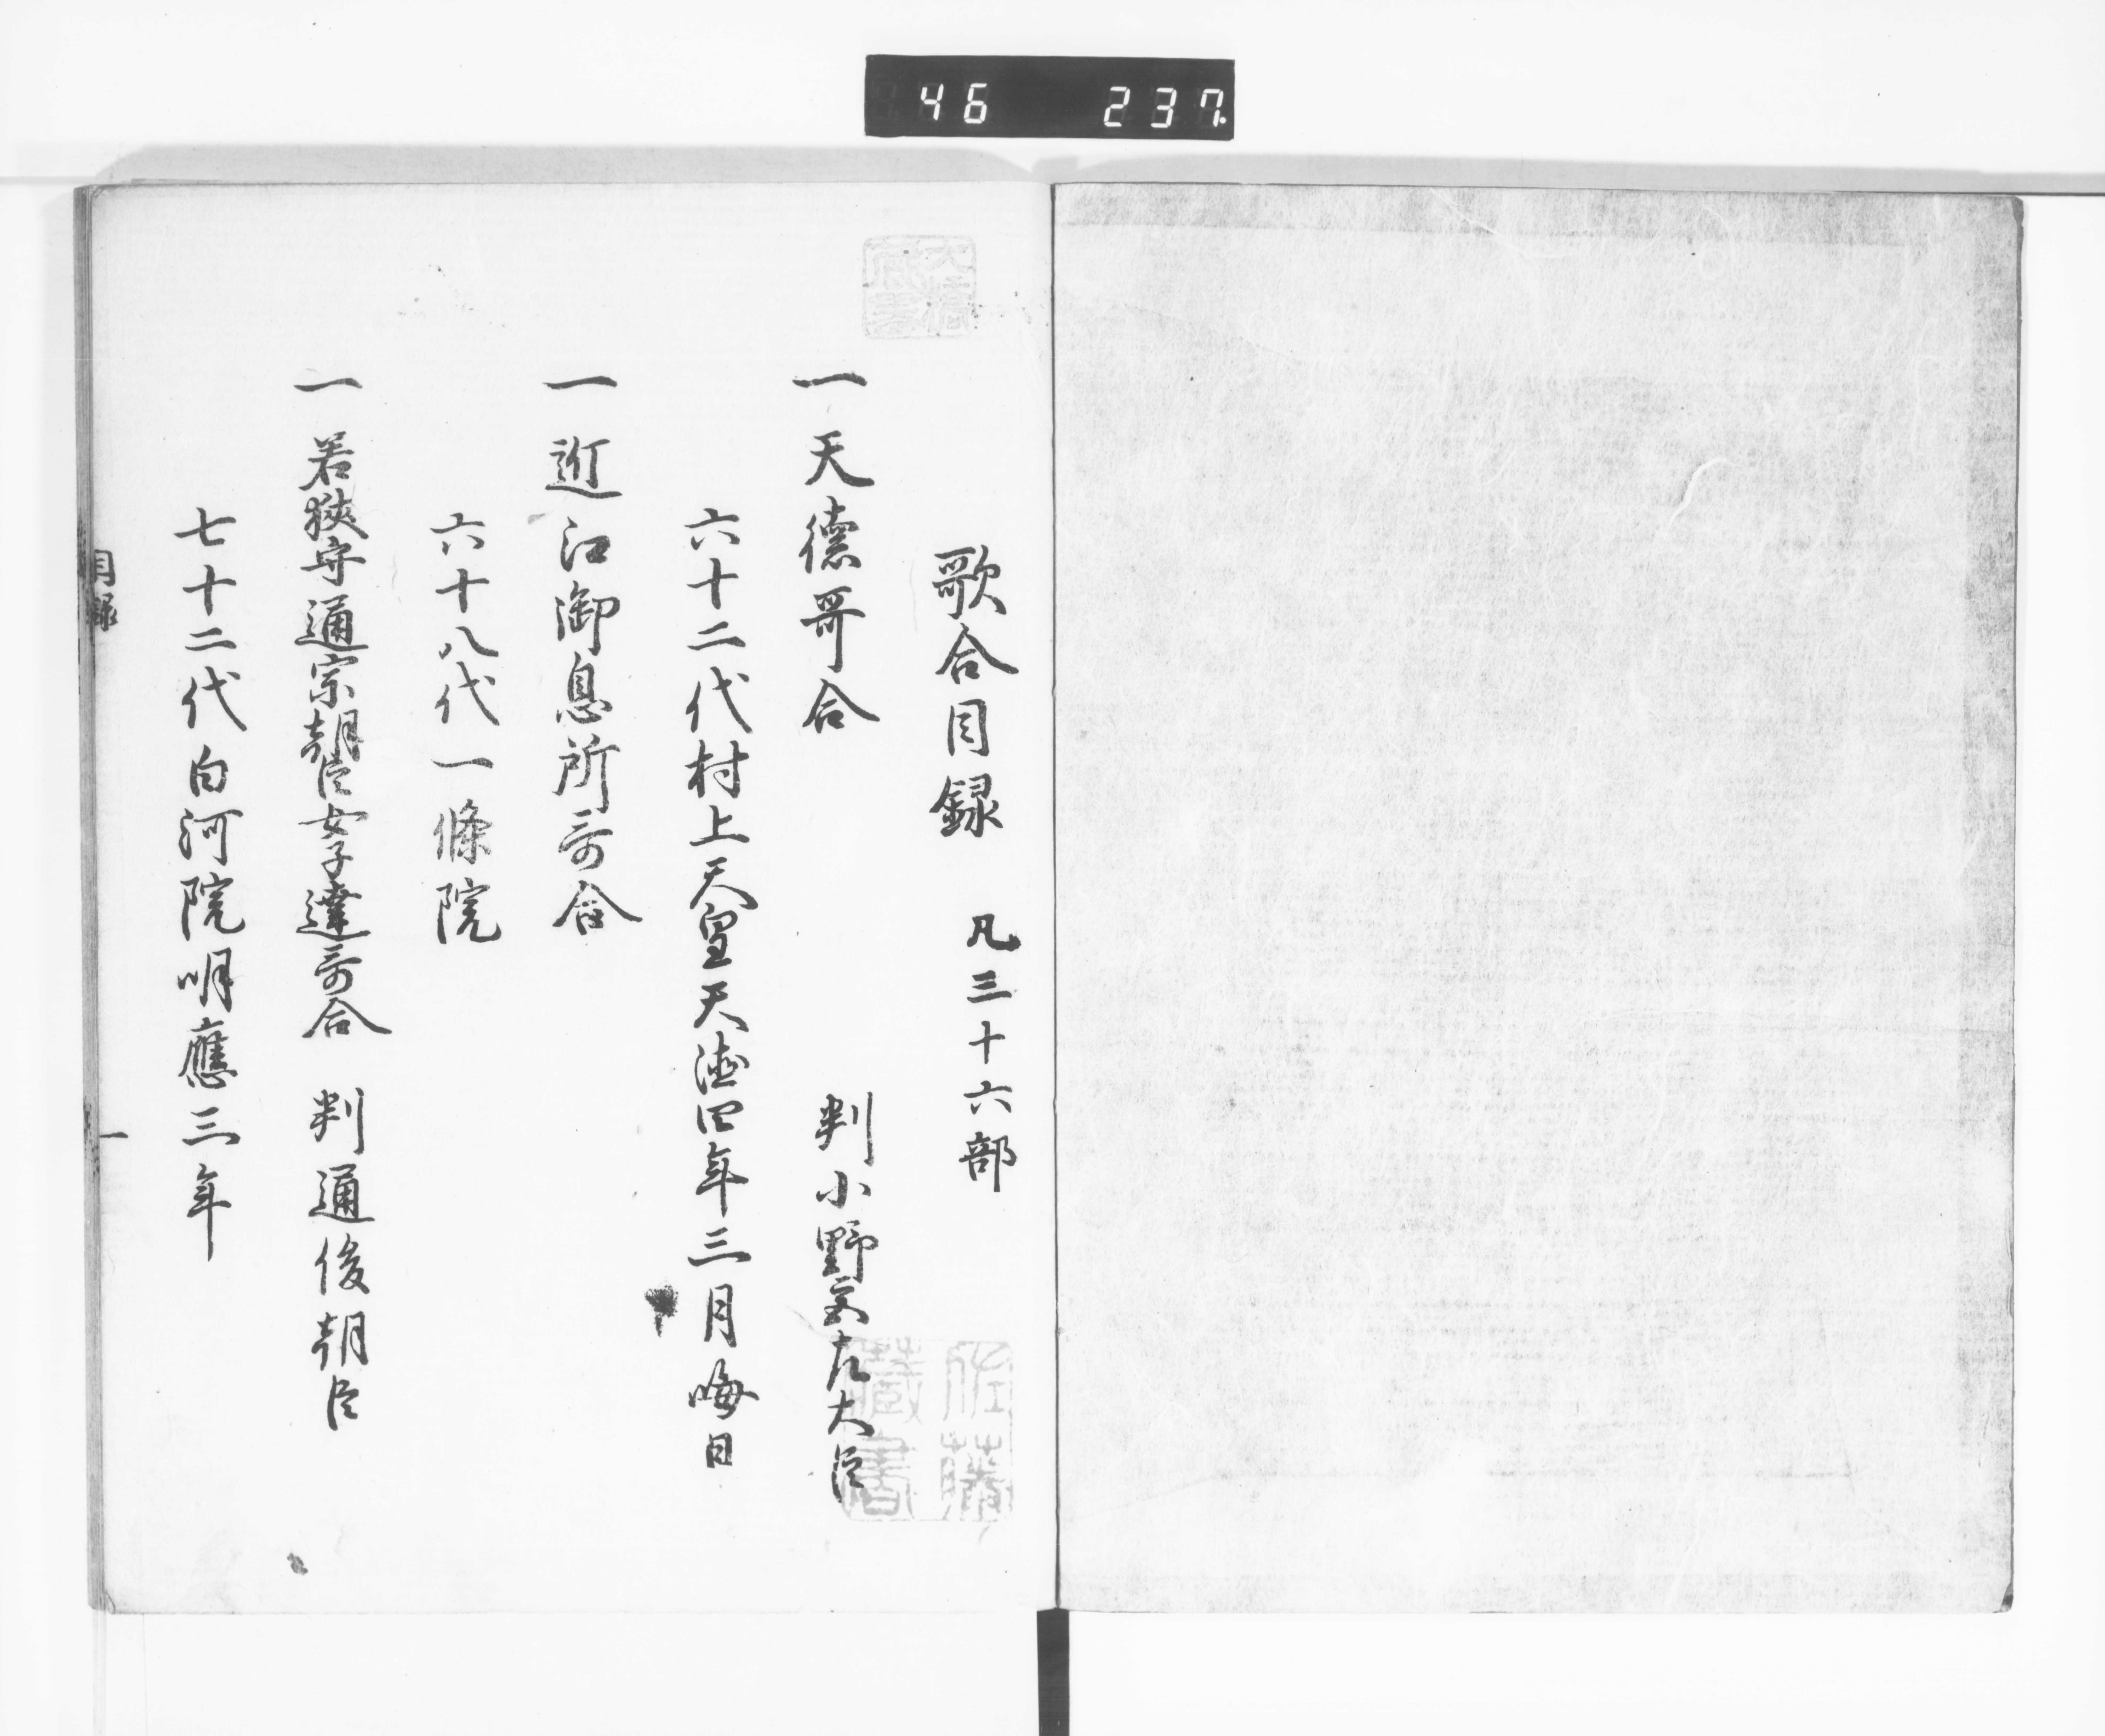 46 237
歌合目録 凡三十六部
一 天德哥合 判小野宮左大臣
六十二代村上天皇天徳四年三月晦日
一 近江御息所哥合
六十八代一條院
一 若狹守通宗朝臣女子達哥合 判通俊朝臣
七十二代白河院明應三年
目録 一
佐藤
藏書